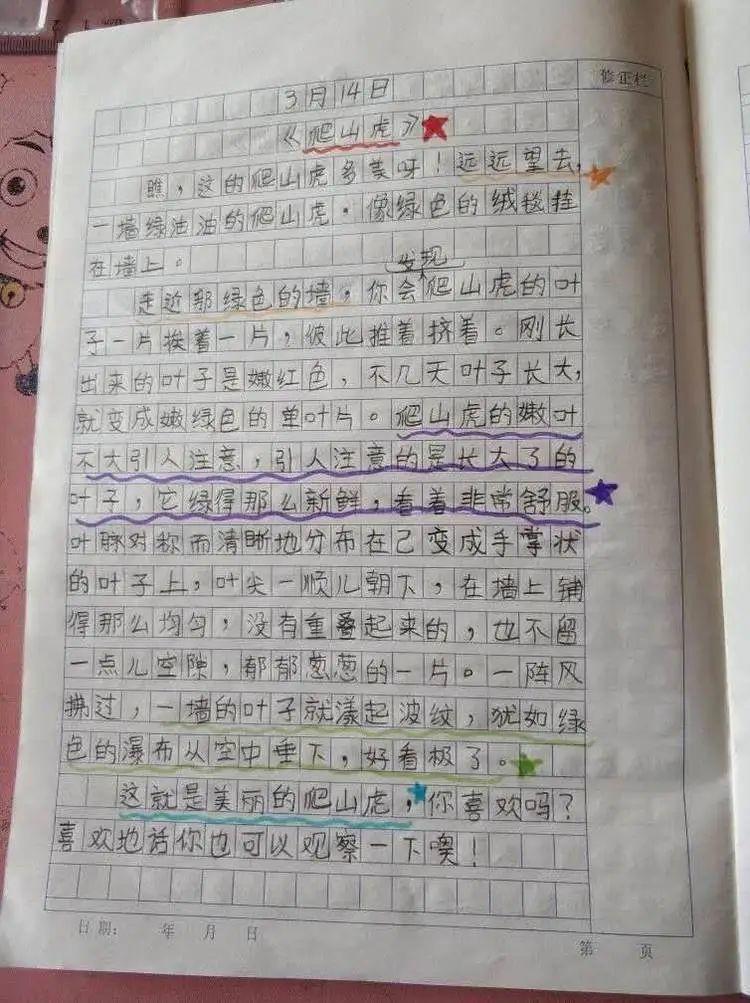 修正栏
3月14日
《爬山虎》
瞧，这的爬山虎多美呀！远远望去，
一墙绿油油的爬山虎。像绿色的绒毯挂
在墙上。
发现
走近那绿色的墙，你会爬山虎的叶
子一片挨着一片，彼此推着挤着。刚长
出来的叶子是嫩红色，不几天叶子长大，
就变成嫩绿色的单叶片。爬山虎的嫩叶
不大引人注意，引人注意的是长大了的
叶子，它绿得那么新鲜，看着非常舒服。
叶脉对称而清晰地分布在己变成手掌状
的叶子上，叶尖一顺儿朝下，在墙上铺
得那么均匀，没有重叠起来的，也不留
一点儿空隙，郁郁葱葱的一片。一阵风
拂过，一墙的叶子就漾起波纹，犹如绿
色的瀑布从空中垂下，好看极了。
这就是美丽的爬山虎，你喜欢吗？
喜欢地话你也可以观察一下噢！
日期： 年 月 日
第 页